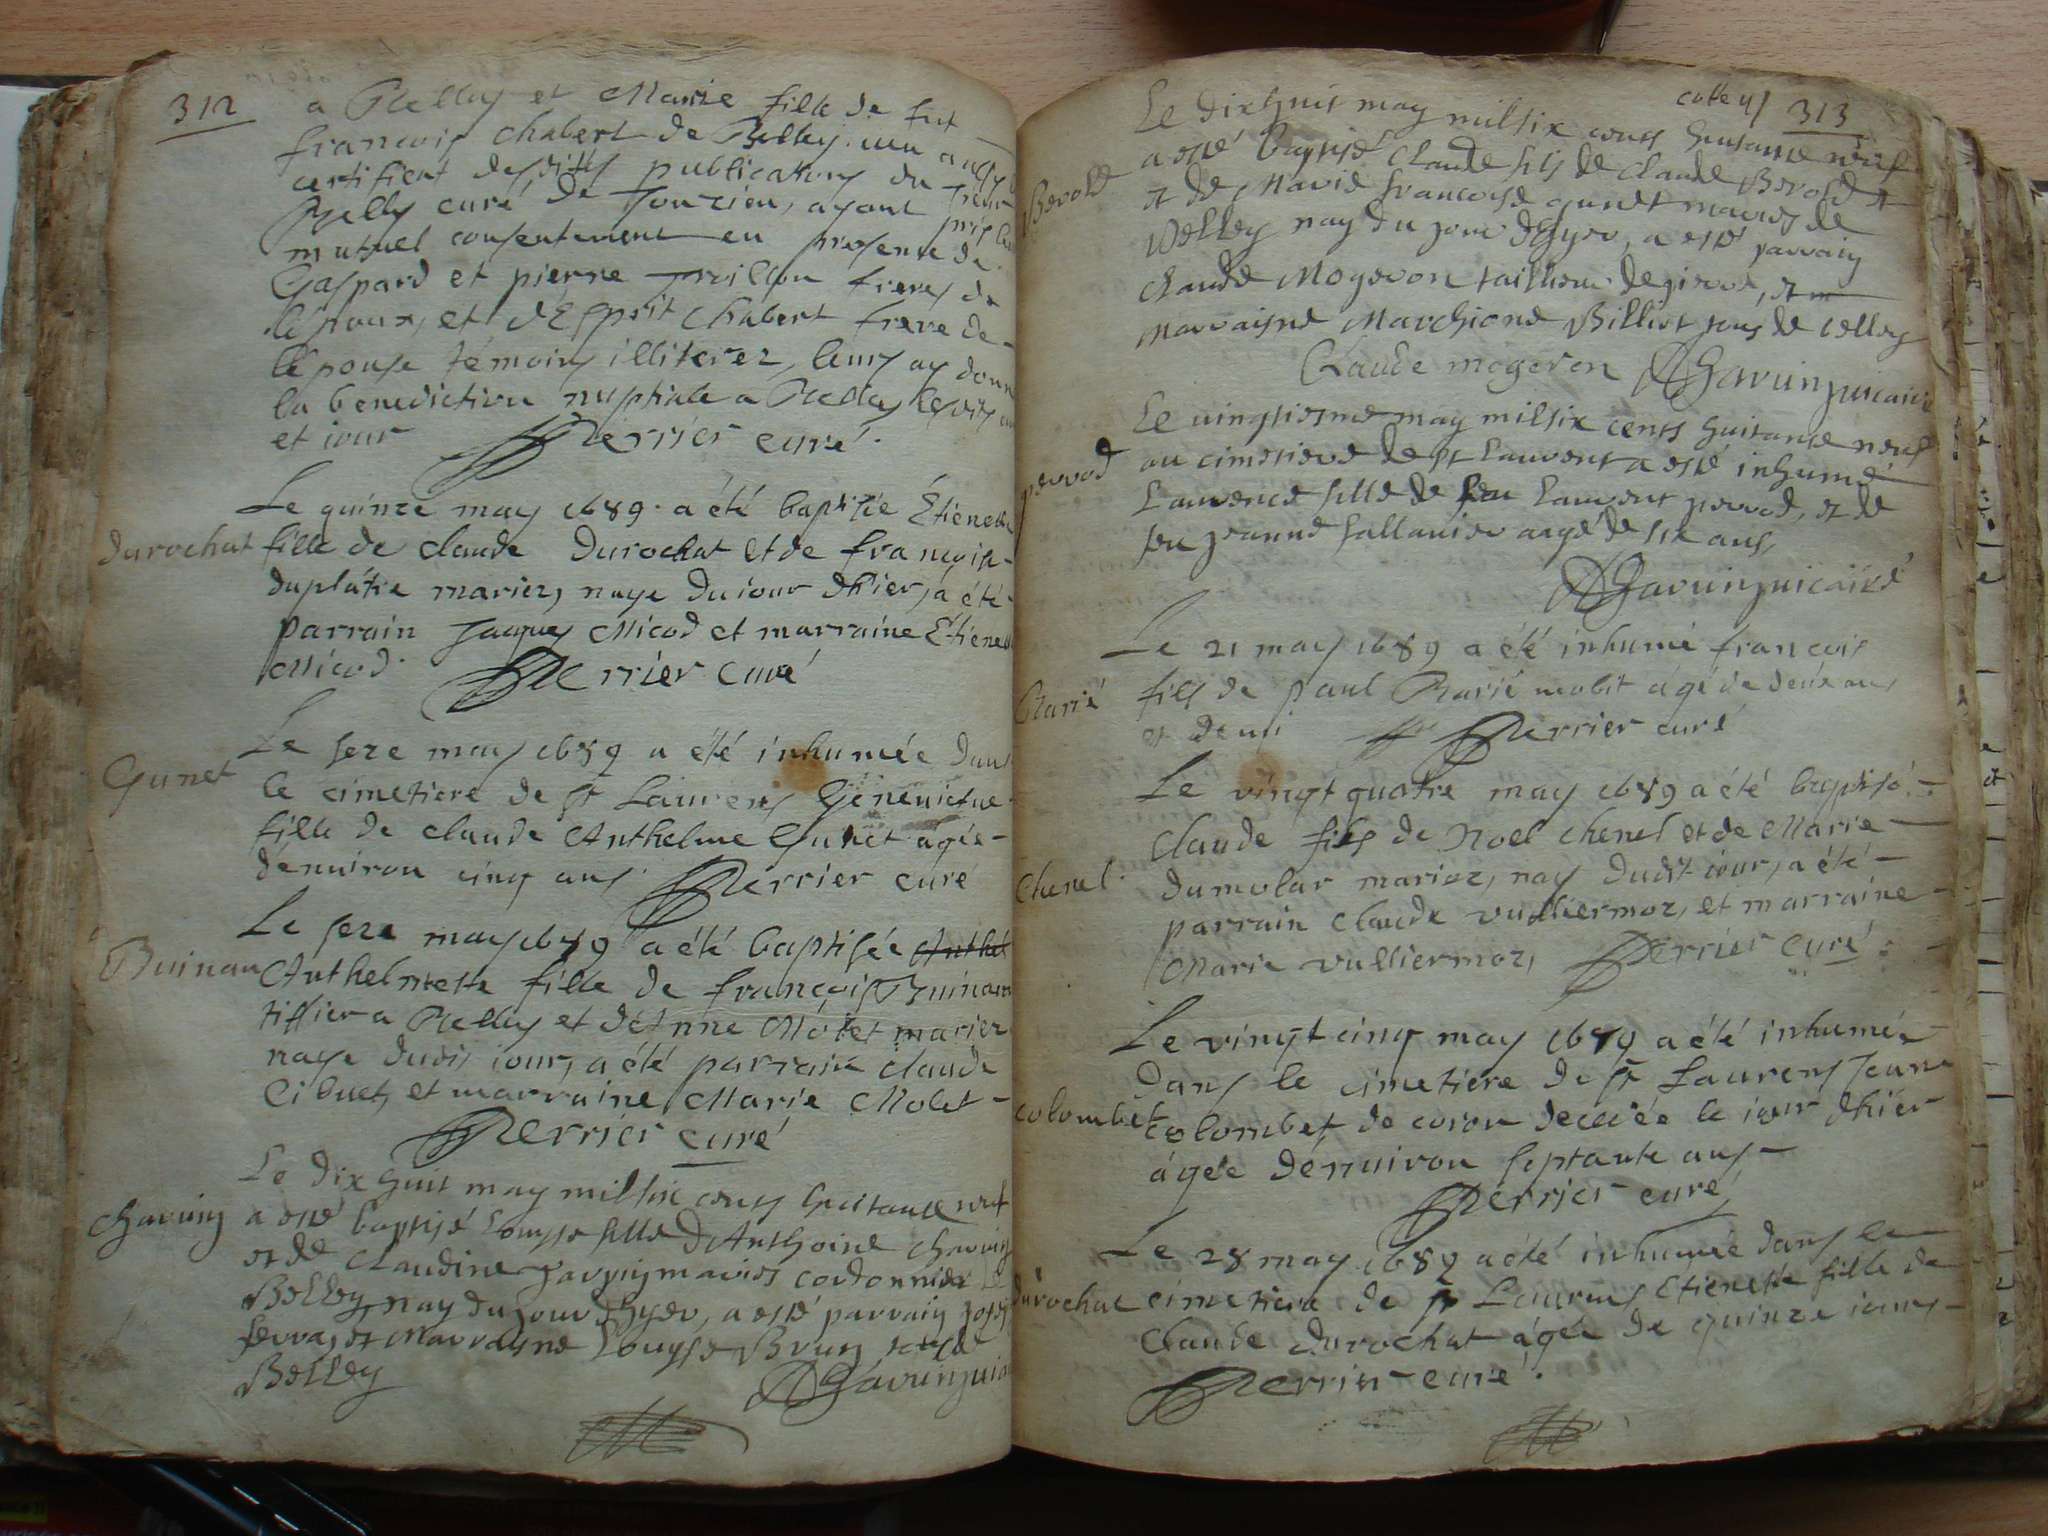 312
a Belley et Marie fille de fut
francois Chabert de Belley. veu aussy
certificat desdits publications du sieur
Belly curé de ayant pris le
mutuel consentement en presence de
Gaspard et pierre freres de
l'époux, et d'Esprit Chabert frere de
l'épouse témoins illiterez, leurs ay donné
la benediction nuptiale a Belley lesdits an
et iour Perrier curé.
Durochat
Le quinze may 1689. a été baptisée Étienette
fille de claude Durochat et de francoise
duplâtre mariez, naye du iour d'hier, a été
parrain Jaques Micod et marraine Étienette
Micod. Perrier curé
Gunet
Le seze may 1689 a été inhumée dans
le cimetiere de st Laurens
fille de claude Anthelme Gunet agée
dénuiron cinq ans. Perrier curé
Buinan
Le seze may 1689 a été baptisée Anthel
Anthelmette fille de françois Buinan
tissier a Belley et d'Anne Molet mariez
naye dudit iour, a été parrain claude
Cibuet, et marraine Marie Molet
Perrier curé
Chavuin
Le dix huit may mil six cents huitante neuf
a esté baptisé Louyse fille d'Anthoine Chavuin
et de Claudine mariés cordonnier
Belley nay du jour d'hyer, a esté parrain
Serra, et Marrayne Louyse Brun
Belley
cotte 313
Berold
Le dixhuit may mil six cents huitante neuf
a esté baptisé Claude fils de Claude Berold
et de Marie francoise Gunet mariés de
Belley nay du jour d'hyer, a esté parrain
claude Mogeron tailleur de pierre, et m
marraisne Marchione Billiet tous de Belley
Claude mogeron
perrod
Le vingtiesme may mil six cents huitante neuf
au cimetiere de st Laurent a esté inhumé
Laurence fille de feu Laurent perrod, et de
feu jeanne Sallanier aagé de six ans,
Le 21 may 1689 a été inhumé françois
Plarié
fils de paul Plarié mobit âgé de deux ans
et demi Perrier curé
Le vingt quatre may 1689 a été baptisé
claude fils de Noel Chenel et de Marie
Chenel.
dumolar mariez, nay dudit iour, a été
parrain claude vulliermoz, et marraine
Marie vulliermoz, Perrier curé
Le vingt cinq may 1689 a été inhumée
dans le cimetiere de st Laurens Jeane
Colombet
Colombet de coron decedée le iour d'hier
âgée dénuiron septante ans
Perrier curé
Le 28 may 1689 a été inhumée dans le
durochat
cimetiere de st Laurens Etienette fille de
Claude durochat âgée de quinze iours
Perrier curé.